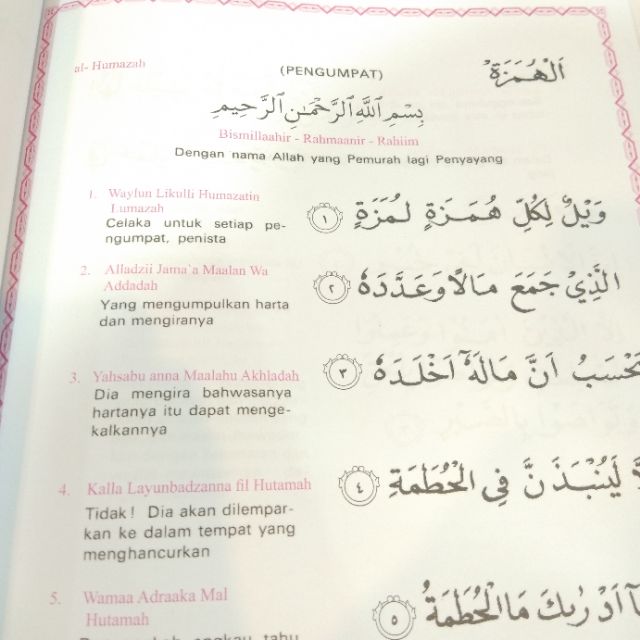 al- Humazah
(PENGUMPAT)
اَلْهُمَزَةُ
بِسْمِ اللَّهِ الرَّحْمَٰنِ الرَّحِيمِ
Bismillaahir - Rahmaanir - Rahiim
Dengan nama Allah yang Pemurah lagi Penyayang
1. Waylun Likulli Humazatin
Lumazah
Celaka untuk setiap pe-
ngumpat, penista
وَيْلٌ لِكُلِّ هُمَزَةٍ لُمَزَةٍ ١
2. Alladzii Jama'a Maalan Wa
Addadah
Yang mengumpulkan harta
dan mengiranya
الَّذِيْ جَمَعَ مَالًا وَعَدَّدَهُ ٢
3. Yahsabu anna Maalahu Akhladah
Dia mengira bahwasanya
hartanya itu dapat menge-
kalkannya
يَحْسَبُ اَنَّ مَالَهُٓ اَخْلَدَهُ ٣
4. Kalla Layunbadzanna fil Hutamah
Tidak! Dia akan dilempar-
kan ke dalam tempat yang
menghancurkan
لَيُنْبَذَنَّ فِي الْحُطَمَةِ ٤
5. Wamaa Adraaka Mal
Hutamah
engkau tahu
اَدْرٰىكَ مَا الْحُطَمَةُ ٥